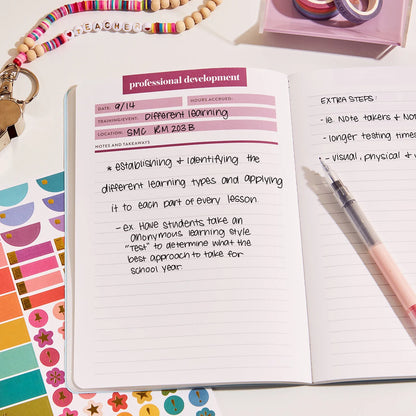 TEACHER
professional development
DATE: 9/14 HOURS ACCRUED:
TRAINING/EVENT: Different learning
LOCATION: SMC RM 203B
NOTES AND TAKEAWAYS
* establishing + identifying the
different learning types and applying
it to each part of every lesson.
- ex. Have students take an
anonymous learning style
"Test" to determine what the
best approach to take for
school year.
EXTRA STEPS:
- ie. Note takers + No
- longer testing time
- visual, physical + v